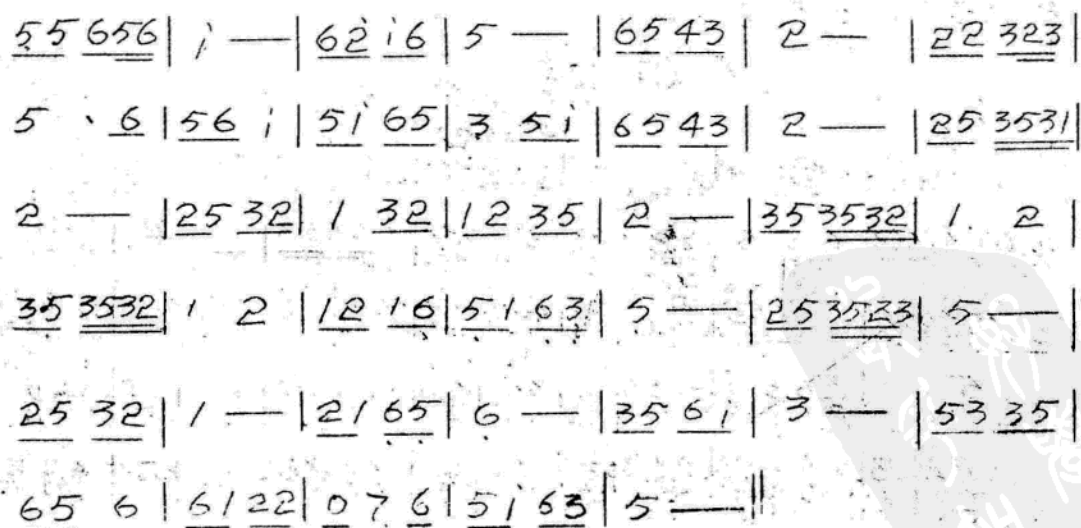 5 5 6 5 6 | i — | 6 2̇ i 6 | 5 — | 6 5 4 3 | 2 — | 2 2 3 2 3 |
5 · 6 | 5 6 i | 5 i 6 5 | 3 5 i | 6 5 4 3 | 2 — | 2 5 3 5 3 1 |
2 — | 2 5 3 2 | 1 3 2 | 1 2 3 5 | 2 — | 3 5 3 5 3 2 | 1. 2 |
3 5 3 5 3 2 | 1 2 | 1 2 1 6̣ | 5̣ 1 6̣ 3̣ | 5̣ — | 2 5 3 5 2 3 | 5 — |
2 5 3 2 | 1 — | 2 1 6̣ 5̣ | 6̣ — | 3 5 6 i | 3 — | 5 3 3 5 |
6 5 6 | 6 1 2 2 | 0 7 6 | 5 i 6 3 | 5 — ‖